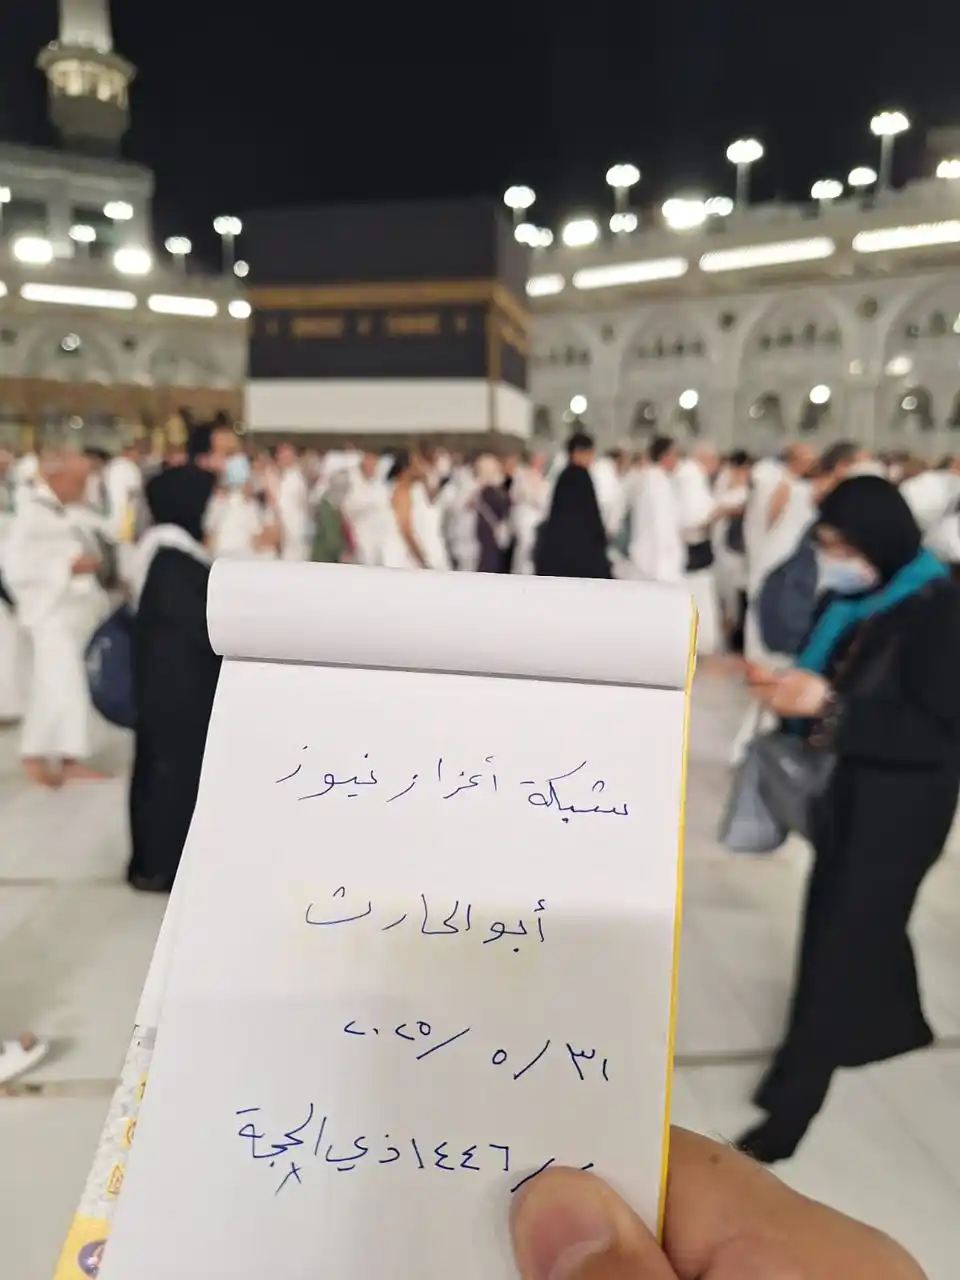 شبكة أعزاز نيوز
أبو الحارث
٣١/ ٥/ ٢٠٢٥
/ ١٤٤٦ ذي الحجة